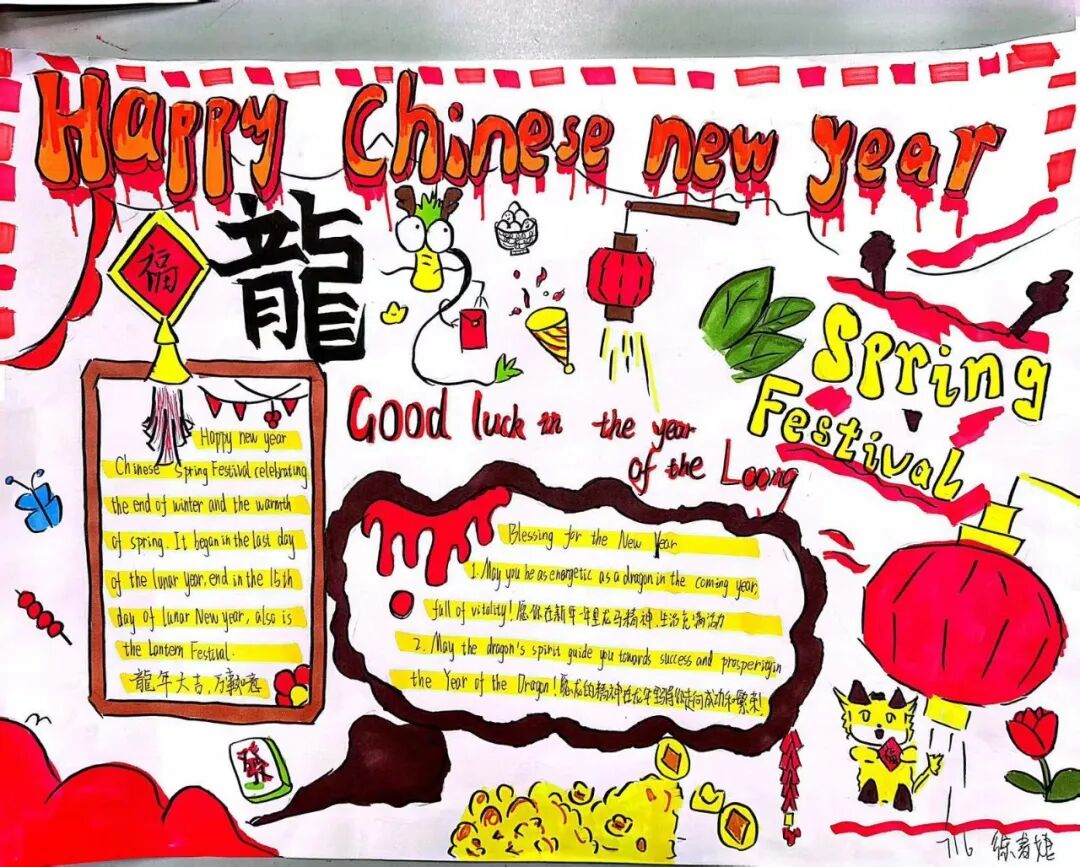 Happy Chinese new year
福
龍
Spring
Festival
Good luck in the year
of the Loong
Happy new year
Chinese Spring Festival celebrating
the end of winter and the warmth
of spring. It began in the last day
of the lunar Year, end in the 15th
day of lunar New year, also is
the Lantern Festival.
龍年大吉,万事如意
Blessing for the New Year
1. May you be as energetic as a dragon in the coming year,
full of vitality! 愿你在新年一年里龙马精神,生活充满活力
2. May the dragon's spirit guide you towards success and prosperity in
the Year of the Dragon! 愿龙的精神在龙年里将你走向成功和繁荣!
福
716